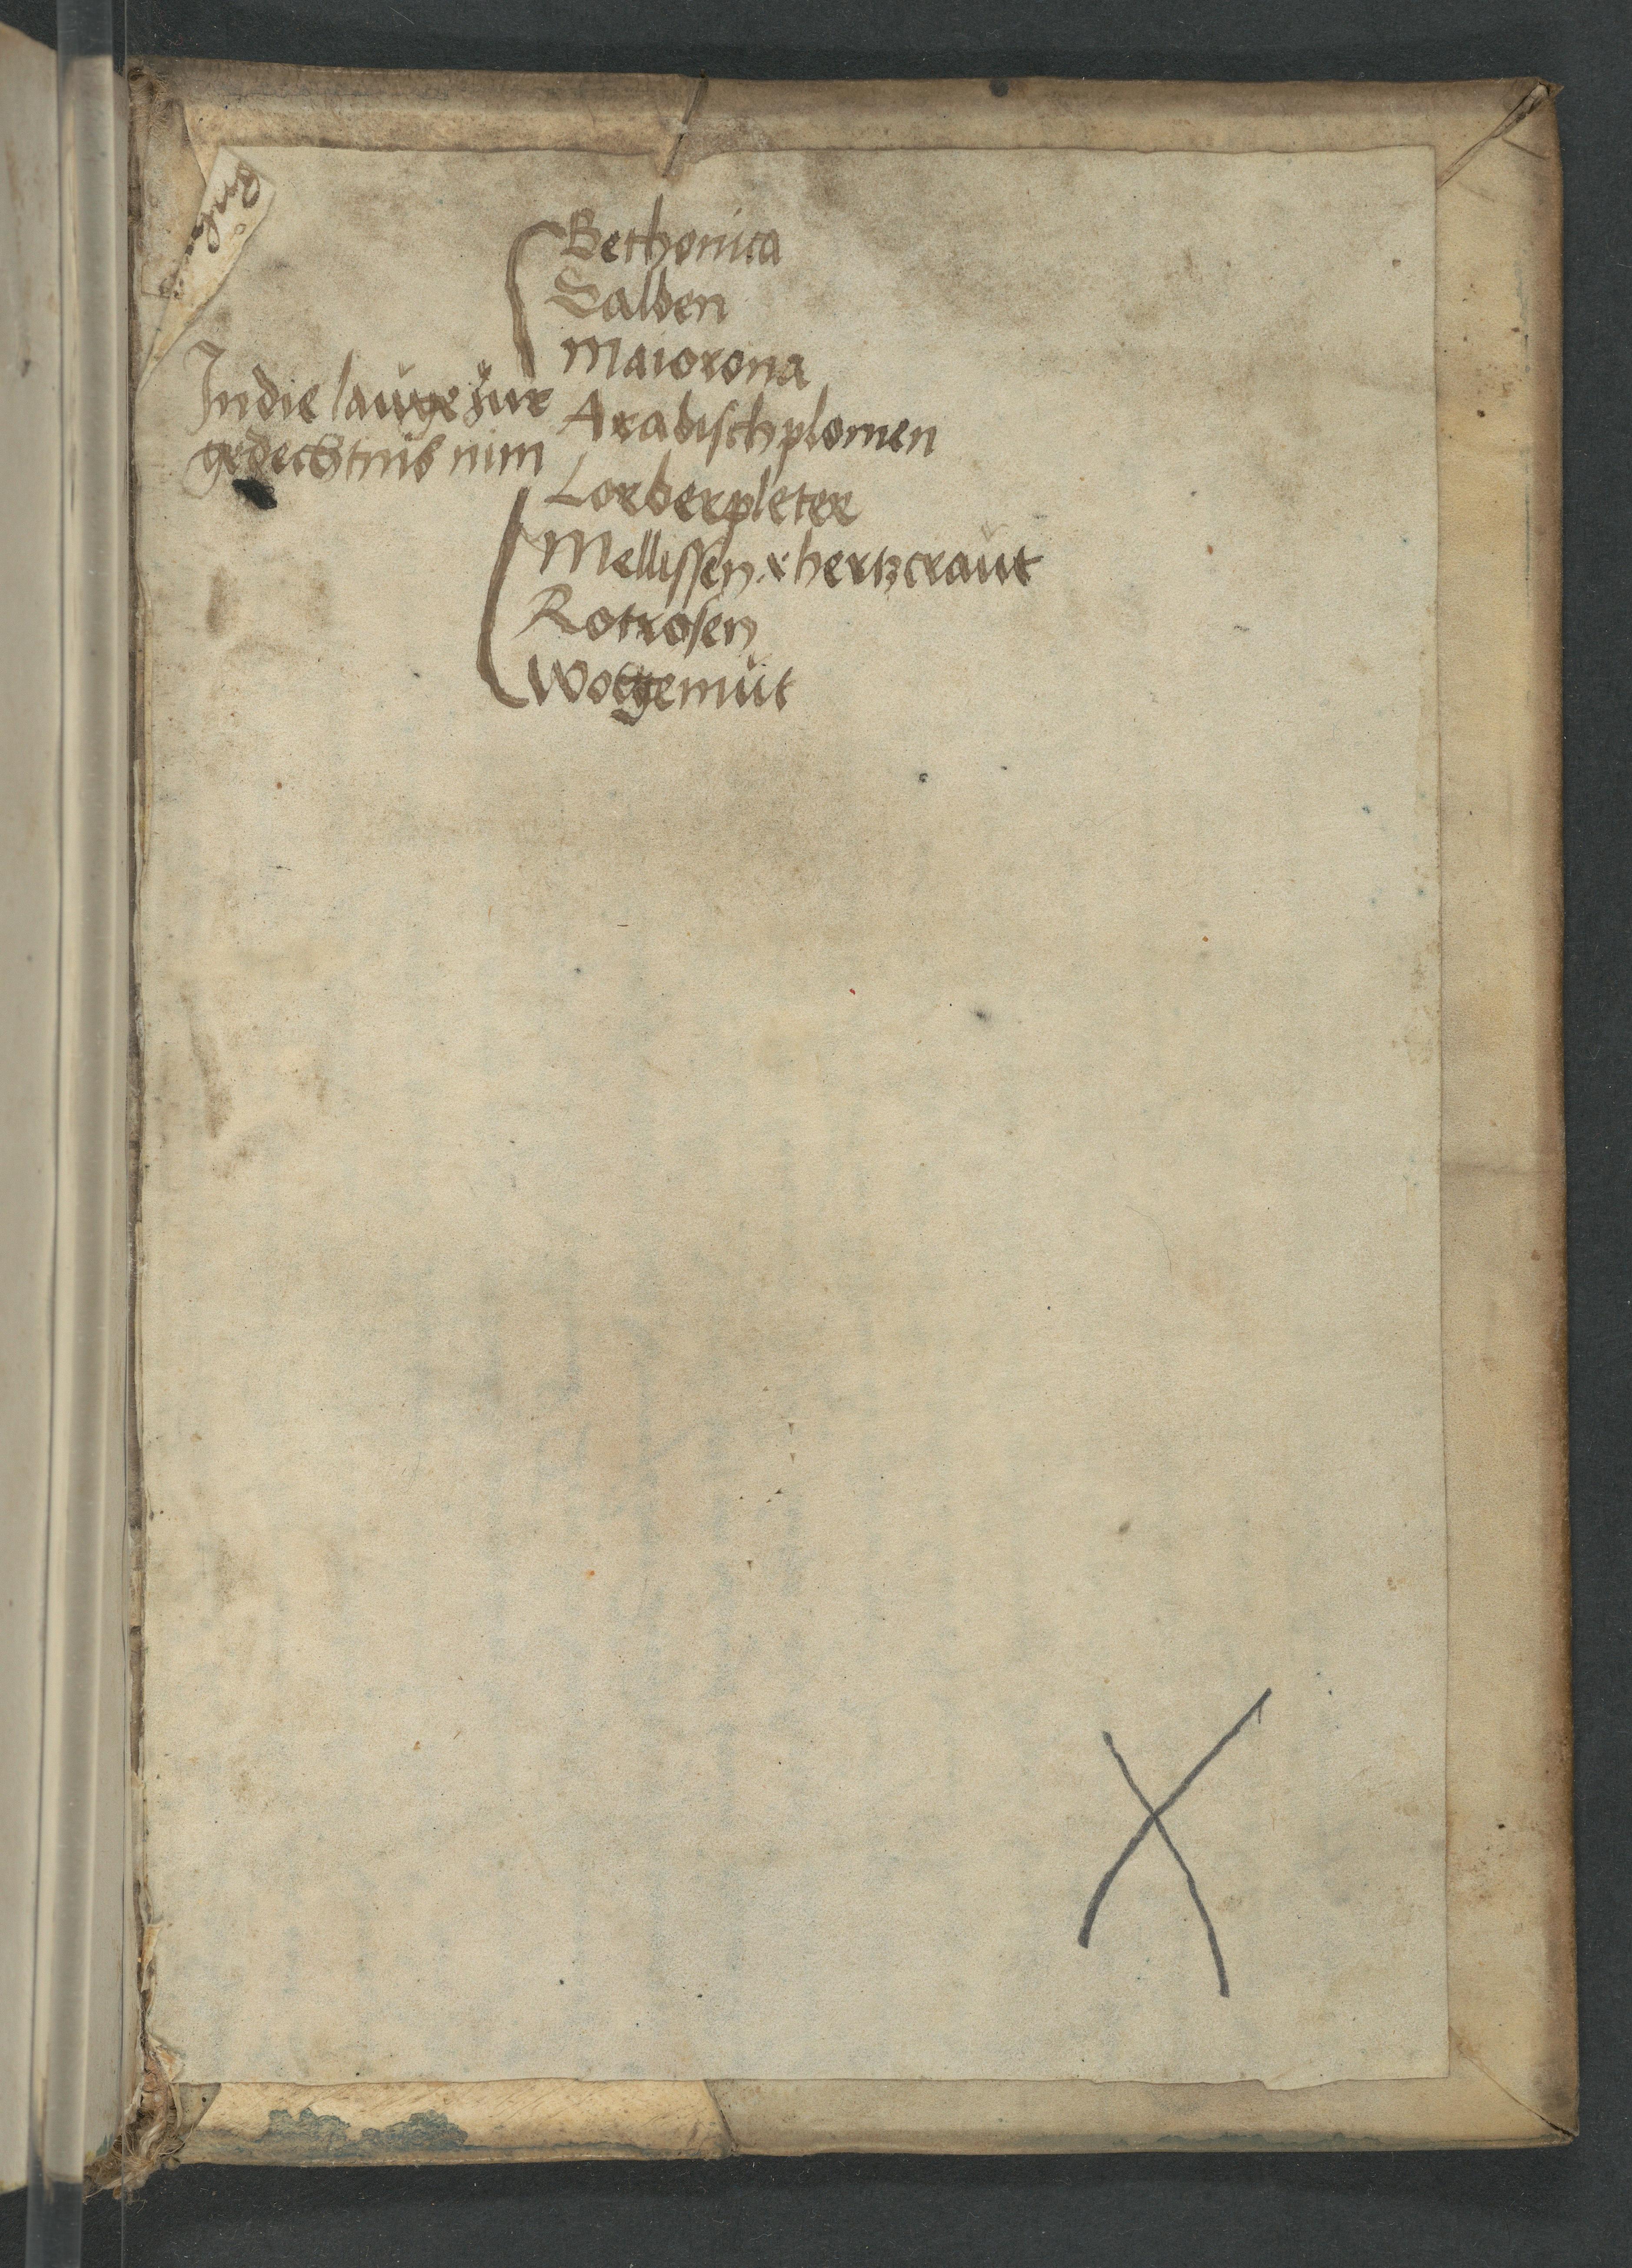 In die lauge zur
gedechtnis nim
Bethonica
Salben
Maiorona
Arabisch plomen
Lorberpleter
Mellissen v hertzcraut
Rotrosen
Wolgemut